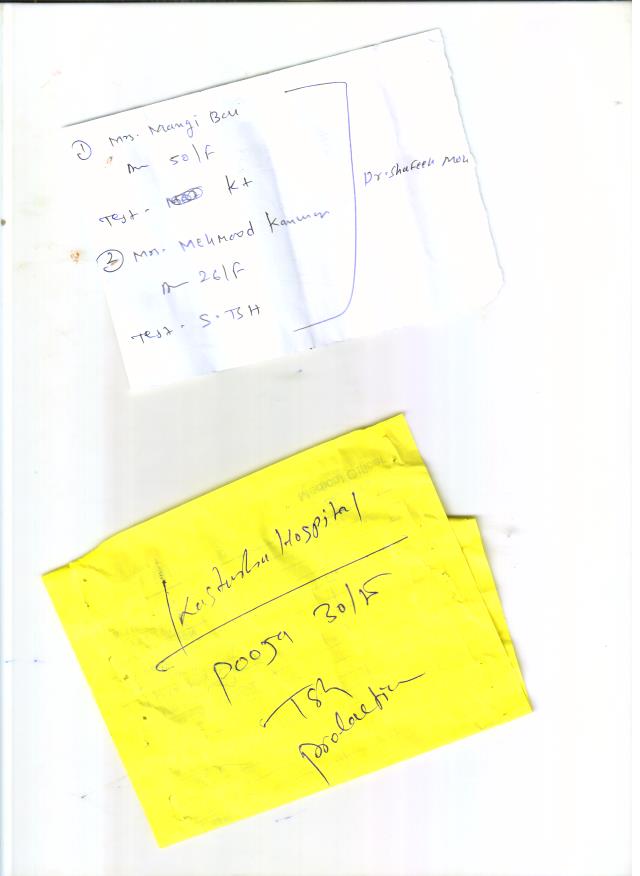 ① Mrs. Mangi Bai
50/F
Test - K+
Dr. Shafeeh Moh
② Mrs. Mehmood Kanwar
26/F
Test - S. TSH
Kasturba Hospital
Pooja 30/F
TSh
prolactin